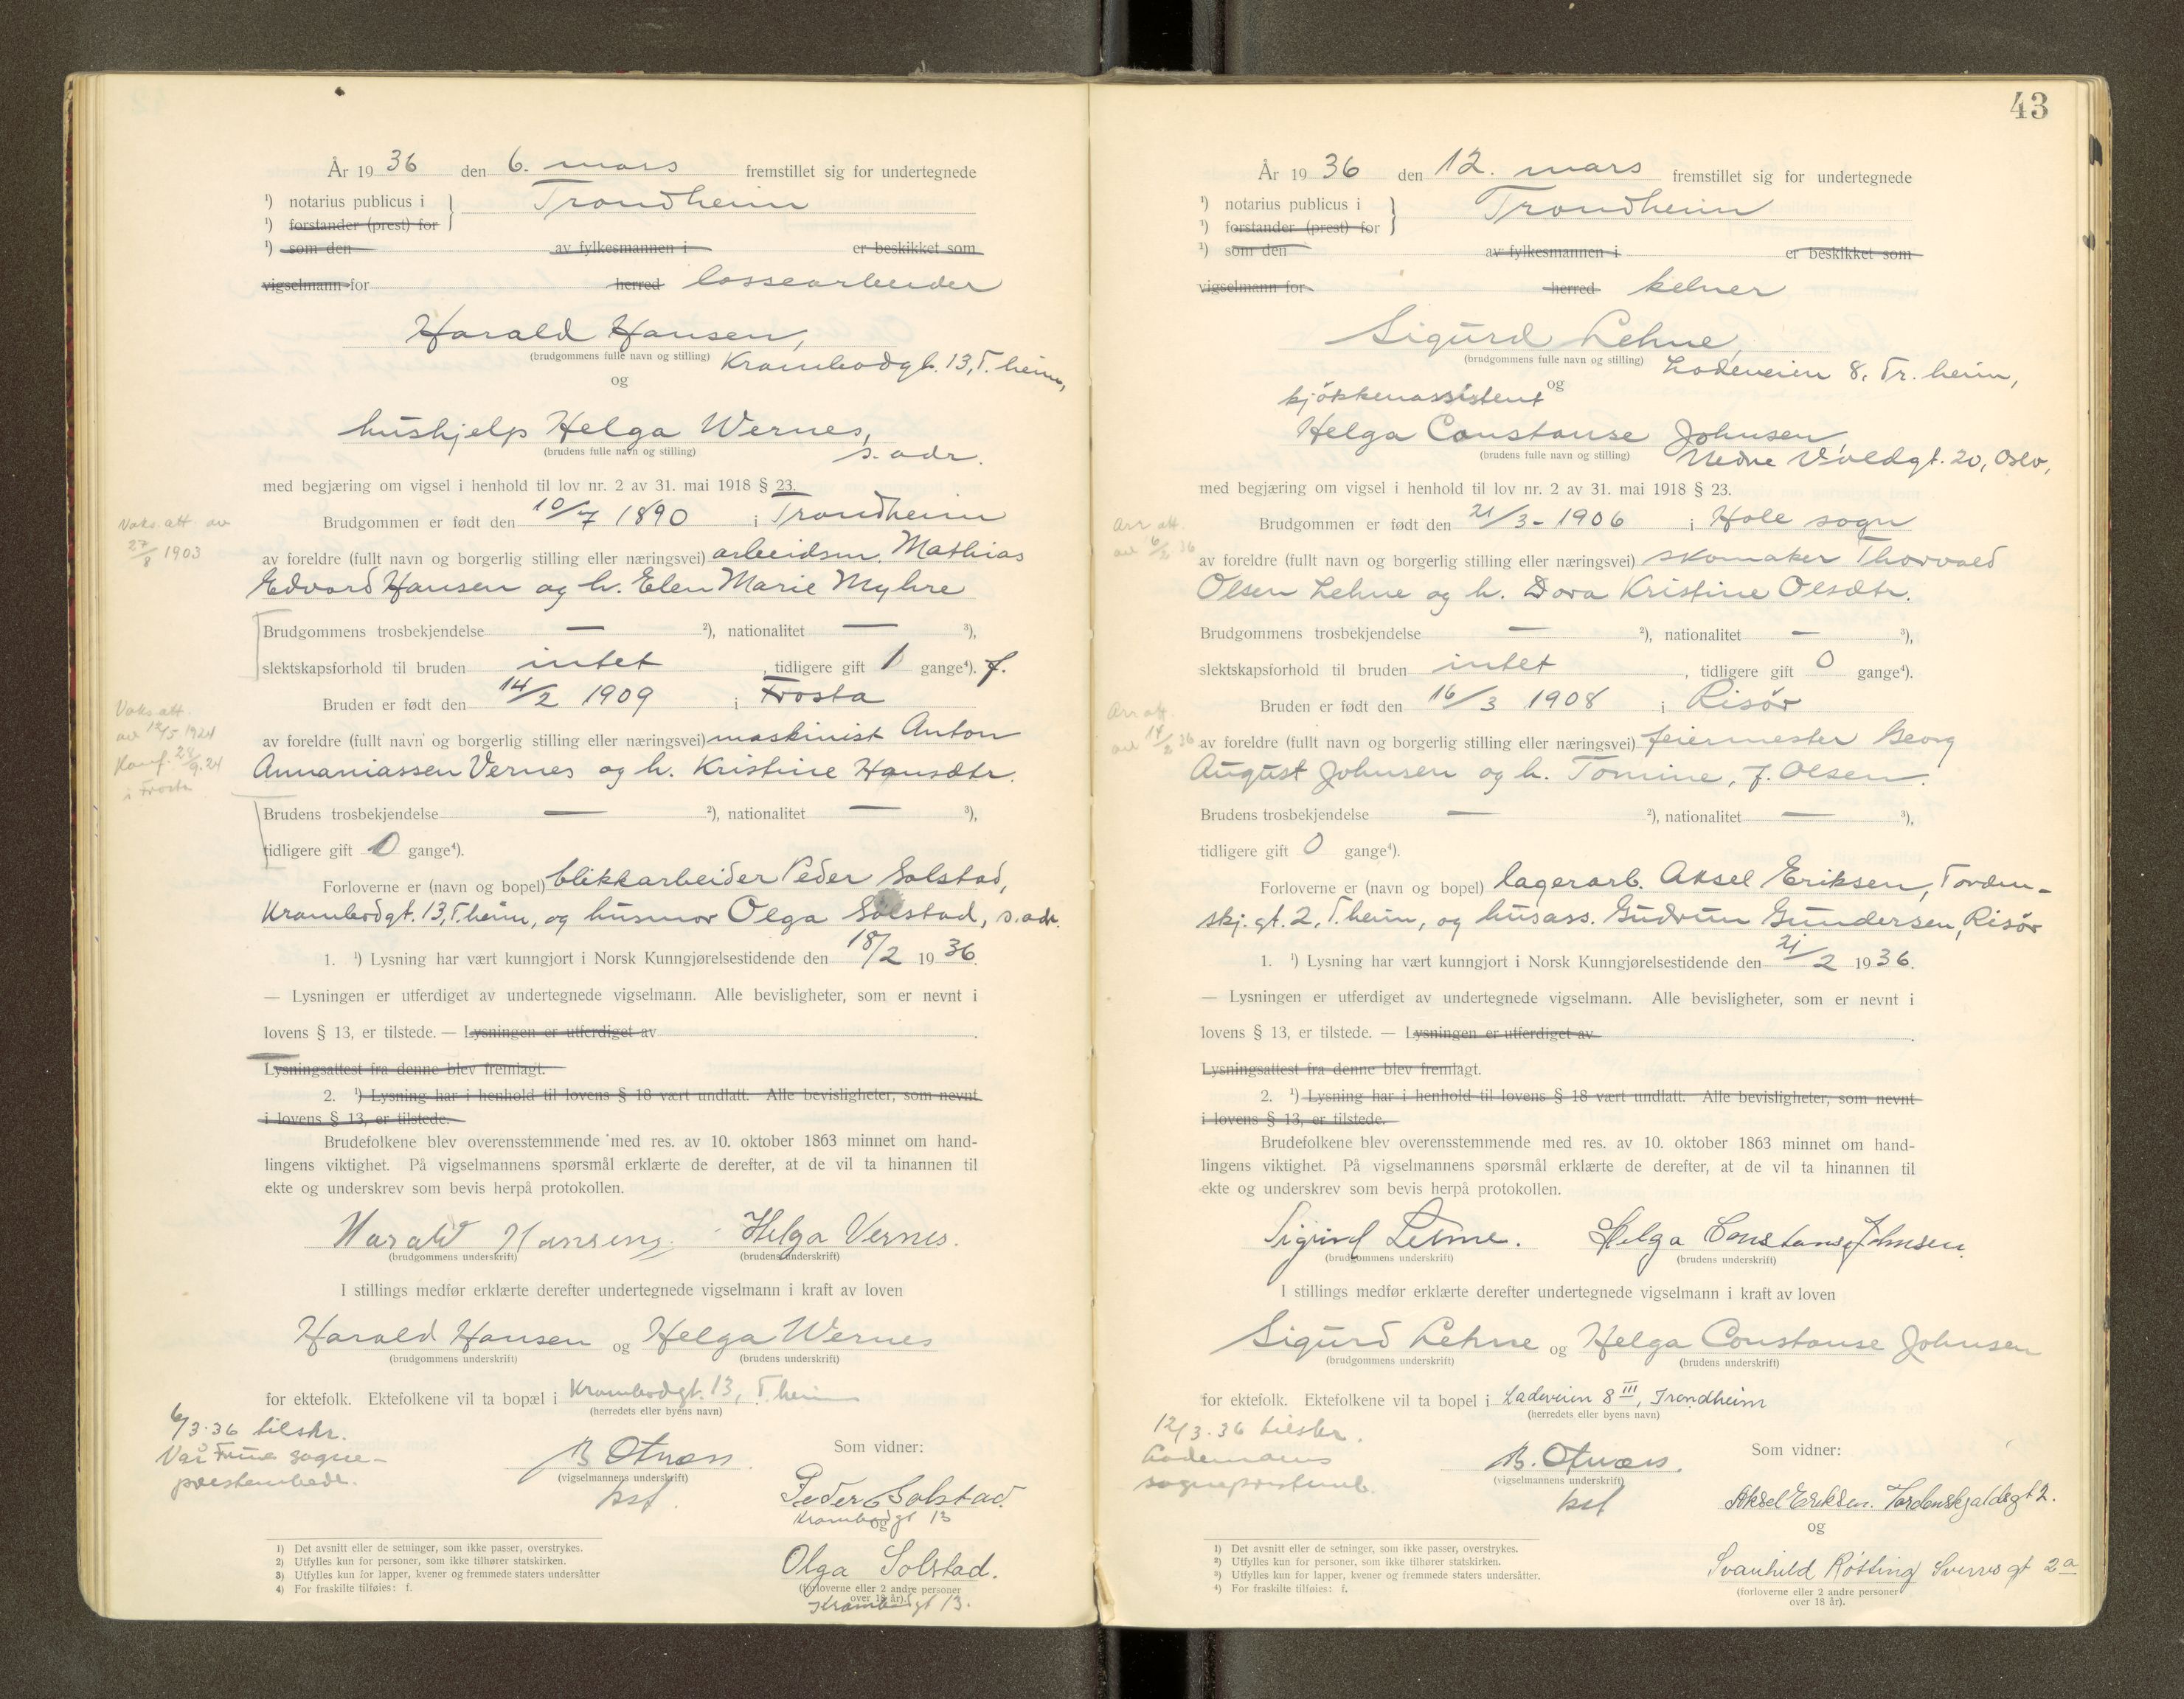 År 1936 den 6. mars fremstillet sig for undertegnede
¹) notarius publicus i } Trondheim
¹) forstander (prest) for
¹) som den av fylkesmannen i er beskikket som
vigselmann for herred lossearbeider
Harald Hansen,
(brudgommens fulle navn og stilling) Krambodgt. 13, T.heim,
og
hushjelp Helga Wernes,
(brudens fulle navn og stilling) s. adr.
med begjæring om vigsel i henhold til lov nr. 2 av 31. mai 1918 § 23.
Vaks.att av 27/8 1903
Brudgommen er født den 10/7 1890 i Trondheim
av foreldre (fullt navn og borgerlig stilling eller næringsvei) arbeidsm. Mathias
Edvard Hansen og h. Elen Marie Myhre
Brudgommens trosbekjendelse — ²), nationalitet — ³),
slektskapsforhold til bruden intet, tidligere gift 1 gange⁴). f.
Vaks.att. av 14/5 1924
Konf. 28/9.24
i Frosta
Bruden er født den 14/2 1909 i Frosta
av foreldre (fullt navn og borgerlig stilling eller næringsvei) maskinist Anton
Annaniassen Vernes og h. Kristine Hansdtr.
Brudens trosbekjendelse — ²), nationalitet — ³),
tidligere gift 0 gange⁴).
Forloverne er (navn og bopel) blikkarbeider Peder Solstad,
Krambodgt. 13, T.heim, og husmor Olga Solstad, s. adr.
1. ¹) Lysning har vært kunngjort i Norsk Kunngjørelsestidende den 18/2 1936.
— Lysningen er utferdiget av undertegnede vigselmann. Alle bevisligheter, som er nevnt i
lovens § 13, er tilstede. — Lysningen er utferdiget av
Lysningsattest fra denne blev fremlagt.
2. ¹) Lysning har i henhold til lovens § 18 vært undlatt. Alle bevisligheter, som nevnt
i lovens § 13, er tilstede.
Brudefolkene blev overensstemmende med res. av 10. oktober 1863 minnet om hand-
lingens viktighet. På vigselmannens spørsmål erklærte de derefter, at de vil ta hinannen til
ekte og underskrev som bevis herpå protokollen.
Harald Hansen. Helga Vernes.
(brudgommens underskrift) (brudens underskrift)
I stillings medfør erklærte derefter undertegnede vigselmann i kraft av loven
Harald Hansen og Helga Wernes
(brudgommens underskrift) (brudens underskrift)
for ektefolk. Ektefolkene vil ta bopæl i Krambodgt. 13, T.heim
(herredets eller byens navn)
6/3.36 tilskr.
Vår Frue sogne-
prestembede.
B Otnæss
(vigselmannens underskrift)
kst.
Som vidner:
Peder Solstad.
Krambodgt 13
og
Olga Solstad.
(forloverne eller 2 andre personer
over 18 år).
Krambodgt 13.
1) Det avsnitt eller de setninger, som ikke passer, overstrykes.
2) Utfylles kun for personer, som ikke tilhører statskirken.
3) Utfylles kun for lapper, kvener og fremmede staters undersåtter
4) For fraskilte tilføies: f.
43
År 1936 den 12. mars fremstillet sig for undertegnede
¹) notarius publicus i } Trondheim
¹) forstander (prest) for
¹) som den av fylkesmannen i er beskikket som
vigselmann for herred kelner
Sigurd Lehne,
(brudgommens fulle navn og stilling) Ladeveien 8, Tr.heim,
kjökkenassistent og
Helga Constanse Johnsen,
(brudens fulle navn og stilling) Nedre Voldgt. 20, Oslo,
med begjæring om vigsel i henhold til lov nr. 2 av 31. mai 1918 § 23.
Arr att. av 6/2 36
Brudgommen er født den 21/3 - 1906 i Hole sogn
av foreldre (fullt navn og borgerlig stilling eller næringsvei) skomaker Thorvald
Olsen Lehne og h. Dora Kristine Olsdtr.
Brudgommens trosbekjendelse — ²), nationalitet — ³),
slektskapsforhold til bruden intet, tidligere gift 0 gange⁴).
Arr att. av 14/2 36
Bruden er født den 16/3 1908 i Risör
av foreldre (fullt navn og borgerlig stilling eller næringsvei) feiermester Georg
August Johnsen og h. Tomine, f. Olsen.
Brudens trosbekjendelse — ²), nationalitet — ³),
tidligere gift 0 gange⁴).
Forloverne er (navn og bopel) lagerarb. Aksel Eriksen, Torden-
skj. gt. 2, T.heim, og husass. Gudrun Gundersen, Risör
1. ¹) Lysning har vært kunngjort i Norsk Kunngjørelsestidende den 21/2 1936.
— Lysningen er utferdiget av undertegnede vigselmann. Alle bevisligheter, som er nevnt i
lovens § 13, er tilstede. — Lysningen er utferdiget av
Lysningsattest fra denne blev fremlagt.
2. ¹) Lysning har i henhold til lovens § 18 vært undlatt. Alle bevisligheter, som nevnt
i lovens § 13, er tilstede.
Brudefolkene blev overensstemmende med res. av 10. oktober 1863 minnet om hand-
lingens viktighet. På vigselmannens spørsmål erklærte de derefter, at de vil ta hinannen til
ekte og underskrev som bevis herpå protokollen.
Sigurd Lehne. Helga Constanse Johnsen.
(brudgommens underskrift) (brudens underskrift)
I stillings medfør erklærte derefter undertegnede vigselmann i kraft av loven
Sigurd Lehne og Helga Constanse Johnsen
(brudgommens underskrift) (brudens underskrift)
for ektefolk. Ektefolkene vil ta bopel i Ladeveien 8 III, Trondheim
(herredets eller byens navn)
12/3.36 tilskr.
Lademoens
sogneprestemb.
B. Otnæss.
(vigselmannens underskrift)
kst
Som vidner:
Aksel Eriksen. Tordenskjoldsgt 2.
og
Svanhild Røtting Sverresgt 2a
(forloverne eller 2 andre personer
over 18 år).
¹) Det avsnitt eller de setninger, som ikke passer, overstrykes.
²) Utfylles kun for personer, som ikke tilhører statskirken.
³) Utfylles kun for lapper, kvener og fremmede staters undersåtter.
⁴) For fraskilte tilføies: f.